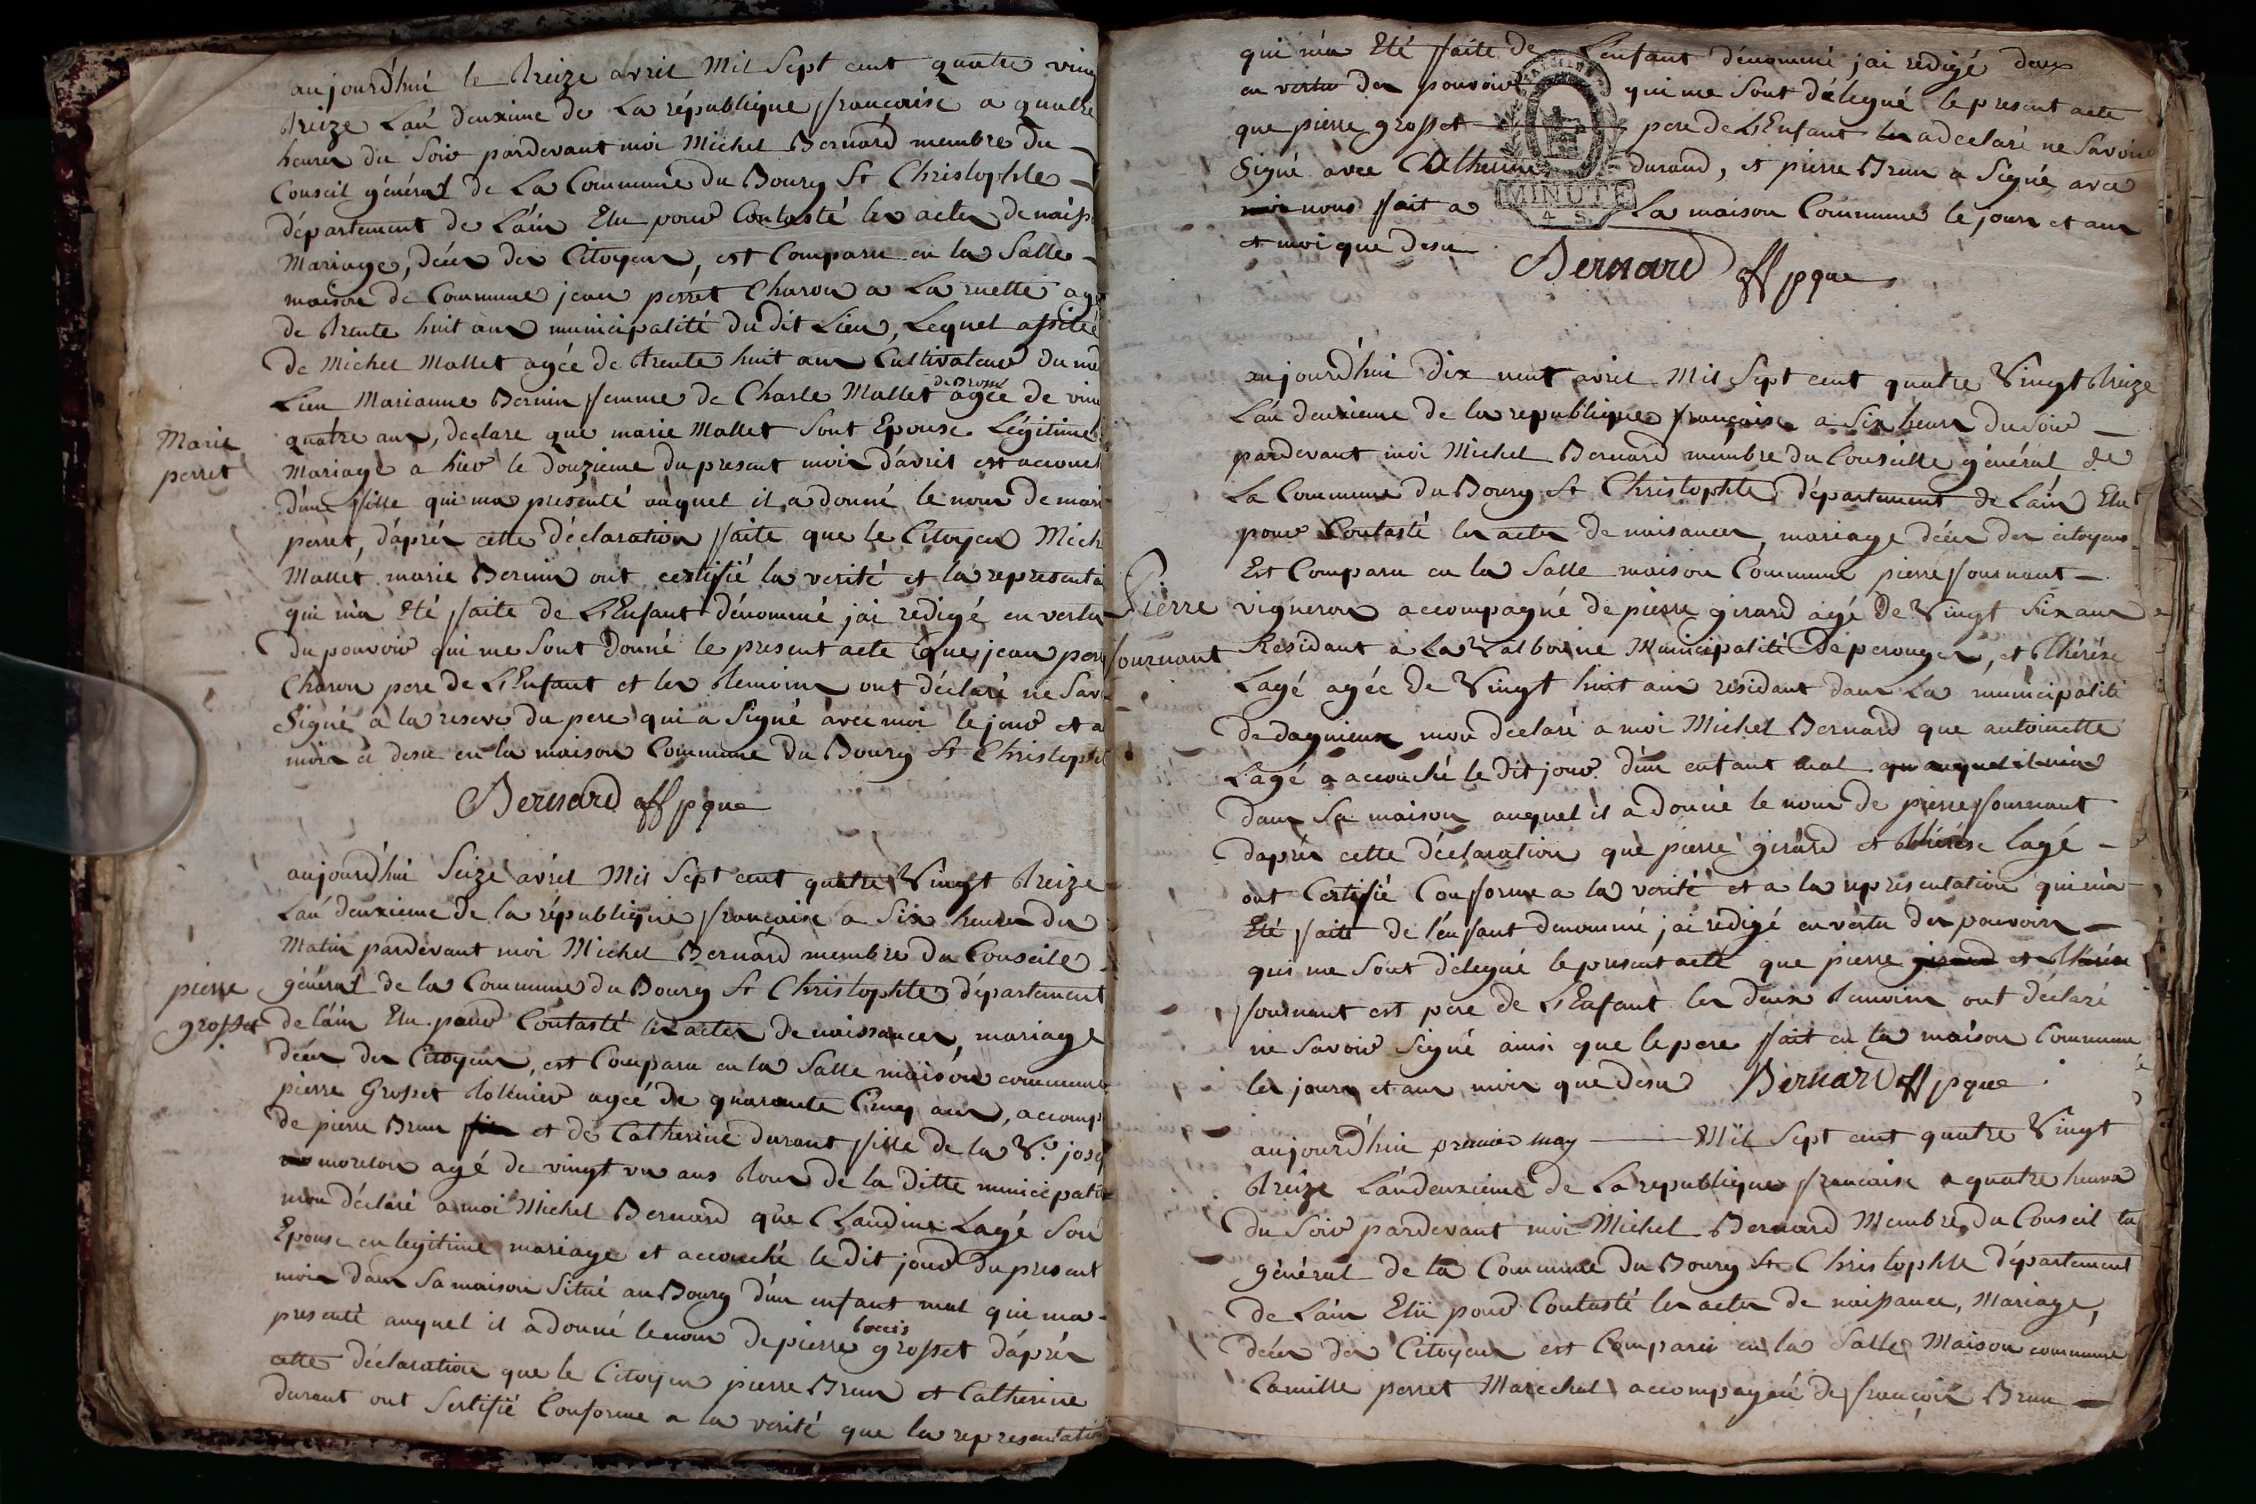 aujourd'hui le treize avril Mil Sept cent quatre ving
treize L'an deuxime de La république francaise a quatre
heures du Soir pardevant moi Michel Bernard membre du
Conseil général de La Commune du Bourg St Christophle
département de L'ain Elu pour Contasté les actes de naiss
Mariage, décès des Citoyens, est Comparu en la Salle
maison de Commune jean perret Charon a La ruette agé
de trente huit ans municipalité du dit Lieu, Lequel assisté
de Michel Mallet agée de trente huit ans Cultivateur du md
Lieu Marianne Bernin femme de Charle Mallet agée de vin
quatre ans, declare que marie Mallet Sont Epouse Légitime
Marie
perret
Mariage a hier le douzieme du present mois d'avril est accouch
d'une fille qui ma presenté auquel il a donné le nom de mari
perret, d'après cette déclaration faite que le Citoyen Mich
Mallet marie Bernin ont certifié la verité et la representa
qui m'a Eté faite de L'Enfant dénommé jai redigé en vertu
du pouvoir qui me Sont Donné le present acte que jean perr
Charon pere de L'Enfant et les temoins ont déclaré ne Sav
Signé a la reserve du pere qui a Signé avec moi le jour et a
mois ci desu en la maison Commune du Bourg St Christoph
Bernard off pque
aujourd'hui Seize avril Mil Sept cent quatre Vingt treize
L'an deuxieme de la république francaise a Six heures du
Matin pardevant moi Michel Bernard membre du Conseile
général de la Commune du Bourg St Christophle département
pierre
grosset
de l'ain Elu pour Contasté les actes de naissances, mariage
décès des Citoyens, est Comparu en la Salle maison commune
pierre Grosset agée de quarante Cinq ans, accomp
de pierre Brun et de Catherine durant fille de la Ve. jos
moreton agé de vingt un ans tous de la ditte municipali
mon déclaré a moi Michel Bernard que Claudine Lagé Son
Epouse en legitime mariage et accouché le dit jour du present
mois dans Sa maison Situé au Bourg d'un enfant mal qui ma
presenté auquel il a donné le nom de pierre louis grosset d'après
cette déclaration que le Citoyen pierre Brun et Catherine
durant ont Sertifié Conforme a la verité que la representation
qui m'a Eté faite de L'enfant dénommé jai rédigé deux
en vertu des pouvoirs qui me Sont délegué le present acte
que pierre grosset pere de L'Enfant a declaré ne Savoir
Signé avec Catherine durand, et pierre Brun a Signé avec
nous fait a La maison Commune le jours et ans
et moi que desu
MINUTE
4 S.
Bernard off pque
aujourd'hui dix neuf avril Mil Sept cent quatre Vingt treize
L'an deuxieme de la republique française a Six heurs du Soir
pardevant moi Michel Bernard membre du Conseille général de
La Commune du Bourg St Christophle département de L'ain Elu
pour Contasté les actes de naisances, mariage décès des citoyens
Est Comparu en la Salle maison Commune pierre fournant
Pierre
fournant
vigneron accompagné de pierre girard agé de Vingt Six ans
Residant a La Valbonne Municipalité de perouges, et thérése
Lagé agée de Vingt huit ans residant dans La municipalité
de dagnieux mon declaré a moi Michel Bernard que antoinette
Lagé a accouché le dit jour d'un enfant mal
dans Sa maison auquel il a donné le nom de pierre fournant
d'après cette déclaration que pierre girard et thérése lagé
ont Certifié Conforme a la verité et a la representation qui m'a
Eté faite de l'enfant denommé jai rédigé en vertu des pouvoirs
qui me Sont délegué le present acte que pierre girard et thérése
fournant est pere de L'Enfant les deux temoins ont déclaré
ne Savoir Signé ainsi que le pere fait en la maison Commune
les jours et ans mois que desu Bernard off pque
aujourd'hui premier may Mil Sept cent quatre Vingt
treize L'an deuxieme de La republique francaise a quatre heures
du Soir pardevant moi Michel Bernard Membre du Conseil
général de la Commune du Bourg St Christophle département
de L'ain Elu pour Contasté les actes de naissance, Mariage,
décès des Citoyens est Comparu en la Salle Maison commune
Camille perret Marechal accompagné de françois Brun